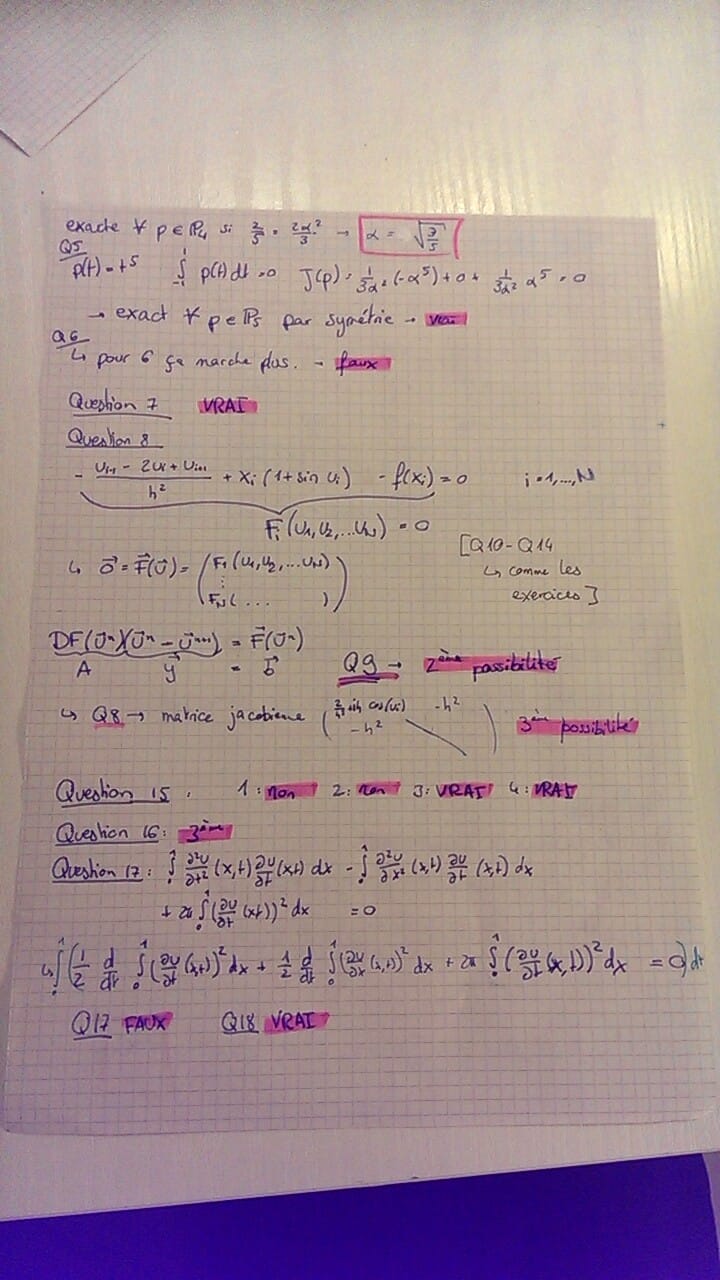 exacte ∀ p ∈ ℙ₄ si 2/5 = 2α²/3 → α = √(3/5)
Q5
p(t) = t⁵ ∫₋₁¹ p(t) dt = 0 J(p) = 1/3α² (-α⁵) + 0 + 1/3α² α⁵ = 0
→ exact ∀ p ∈ ℙ₅ par symétrie → vrai
Q6
↳ pour 6 ça marche plus. → faux
Question 7 VRAI
Question 8
- (Uᵢ₋₁ - 2Uᵢ + Uᵢ₊₁)/h² + xᵢ (1 + sin Uᵢ) - f(xᵢ) = 0 i = 1,...,N
Fᵢ (U₁, U₂, ... U_N) = 0
[Q10 - Q14
↳ comme les
exercices]
↳ 0⃗ = F⃗(U⃗) = ( F₁ (U₁, U₂, ... U_N)
⋮
F_N ( ... ) )
DF(U⃗ⁿ)(U⃗ⁿ - U⃗ⁿ⁺¹) = F⃗(U⃗ⁿ)
A y⃗ = b⃗ Q9 → 2ème possibilité
↳ Q8 → matrice jacobienne ( cos(Uᵢ) -h²
-h² ) 3ème possibilité
Question 15 : 1 : non 2 : non 3 : VRAI 4 : VRAI
Question 16 : 3ème
Question 17 : ∫₀¹ ∂²U/∂t² (x,t) ∂U/∂t (x,t) dx - ∫₀¹ ∂²U/∂x² (x,t) ∂U/∂t (x,t) dx
+ 2π ∫₀¹ (∂U/∂t (x,t))² dx = 0
↳ ∫₀¹ (1/2 d/dt ∫₀¹ (∂U/∂t (x,t))² dx + 1/2 d/dt ∫₀¹ (∂U/∂x (x,t))² dx + 2π ∫₀¹ (∂U/∂t (x,t))² dx = 0) dt
Q17 FAUX Q18 VRAI